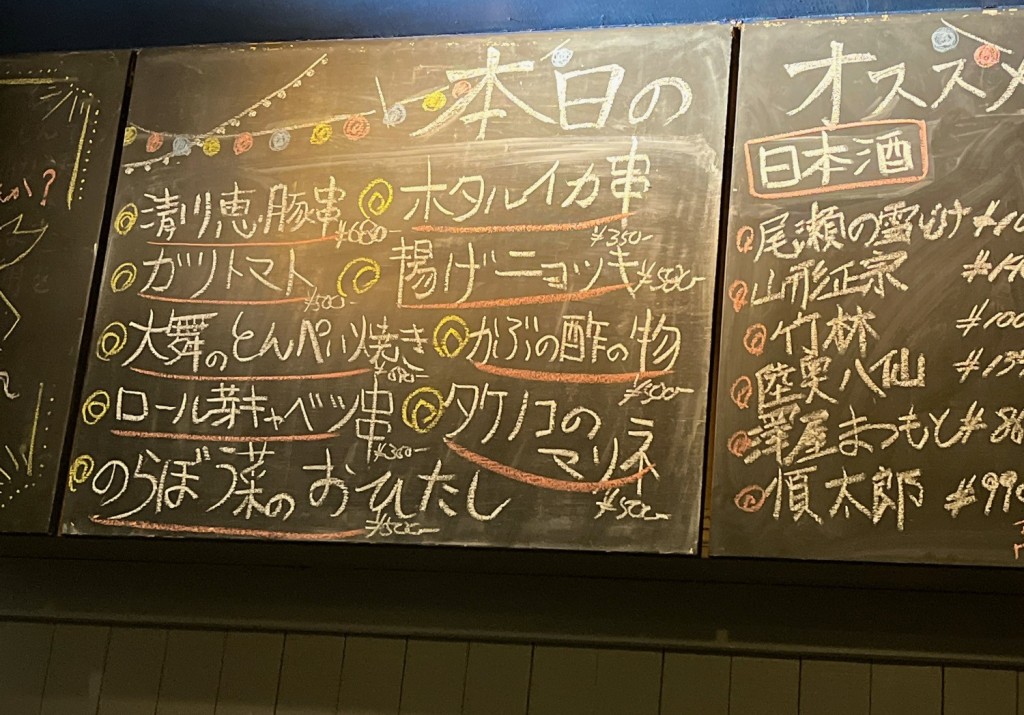 か?
本日の
清川恵豚串 ¥680-
ホタルイカ串 ¥350-
ガツトマト ¥500-
揚げニョッキ ¥580-
大舞のとんぺい焼き
かぶの酢の物 ¥500-
ロール芽キャベツ串 ¥350-
タケノコの
マリネ ¥500-
のらぼう菜のおひたし ¥500-
オススメ
日本酒
尾瀬の雪どけ
山形正宗
竹林
陸奥八仙
澤屋まつもと
慎太郎